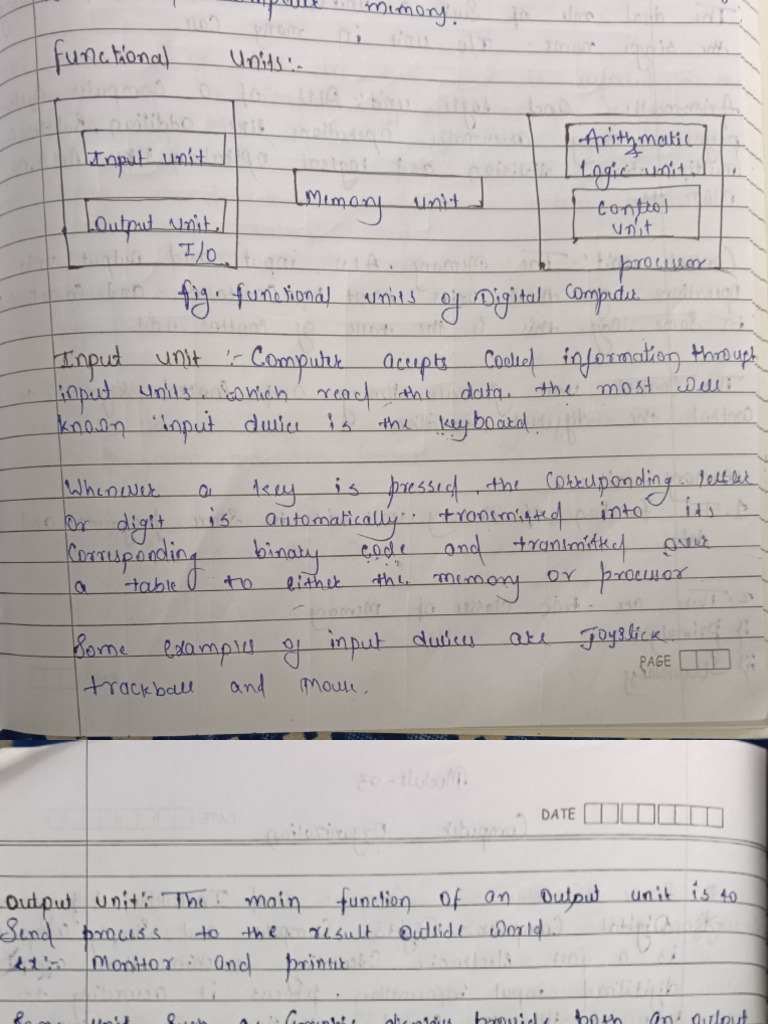 memory.
functional units:-
Input unit
Output unit
I/O
Memory unit
Arithmatic
&
Logic unit.
control
unit
processor
fig. functional units of Digital Computer
Input unit :- Computer accepts coded information through
input units. which read the data. the most well
known input device is the keyboard.
Whenever a key is pressed, the corresponding letter
or digit is automatically transmitted into its
corresponding binary code and transmitted over
a table to either the memory or processor
Some examples of input devices are Joystick
trackball and mouse.
PAGE
DATE
Output unit:- The main function of an output unit is to
Send process to the result outside world.
ex:- Monitor and printer
Some unit such as Graphic displays provide both an output